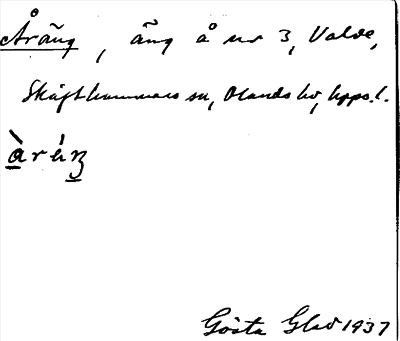 Åräng, äng å nr 3, Valde,
Skäfthammars sn, Olands hd, Upps. l.
å̀räŋ
Gösta Glad 1937